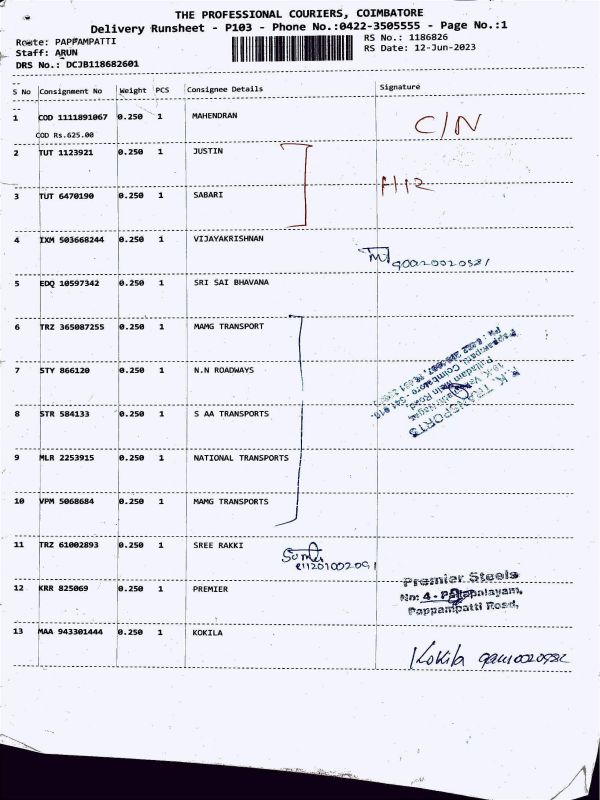 THE PROFESSIONAL COURIERS, COIMBATORE
Delivery Runsheet - P103 - Phone No.:0422-3505555 - Page No.:1
Route: PAPPAMPATTI
RS No.: 1186826
Staff: ARUN
RS Date: 12-Jun-2023
DRS No.: DCJB118682601
S No Consignment No Weight PCS Consignee Details Signature
1 COD 1111891067 0.250 1 MAHENDRAN C/N
COD Rs.625.00
2 TUT 1123921 0.250 1 JUSTIN
3 TUT 6470190 0.250 1 SABARI
4 IXM 503668244 0.250 1 VIJAYAKRISHNAN
5 EDQ 10597342 0.250 1 SRI SAI BHAVANA
6 TRZ 365087255 0.250 1 MAMG TRANSPORT
7 STY 866120 0.250 1 N.N ROADWAYS
8 STR 584133 0.250 1 S AA TRANSPORTS
9 MLR 2253915 0.250 1 NATIONAL TRANSPORTS
10 VPM 5068684 0.250 1 MAMG TRANSPORTS
11 TRZ 61002893 0.250 1 SREE RAKKI
12 KRR 825069 0.250 1 PREMIER
Premier Steels
No: 4 -
Pappampatti Road,
13 MAA 943301444 0.250 1 KOKILA
Kokila